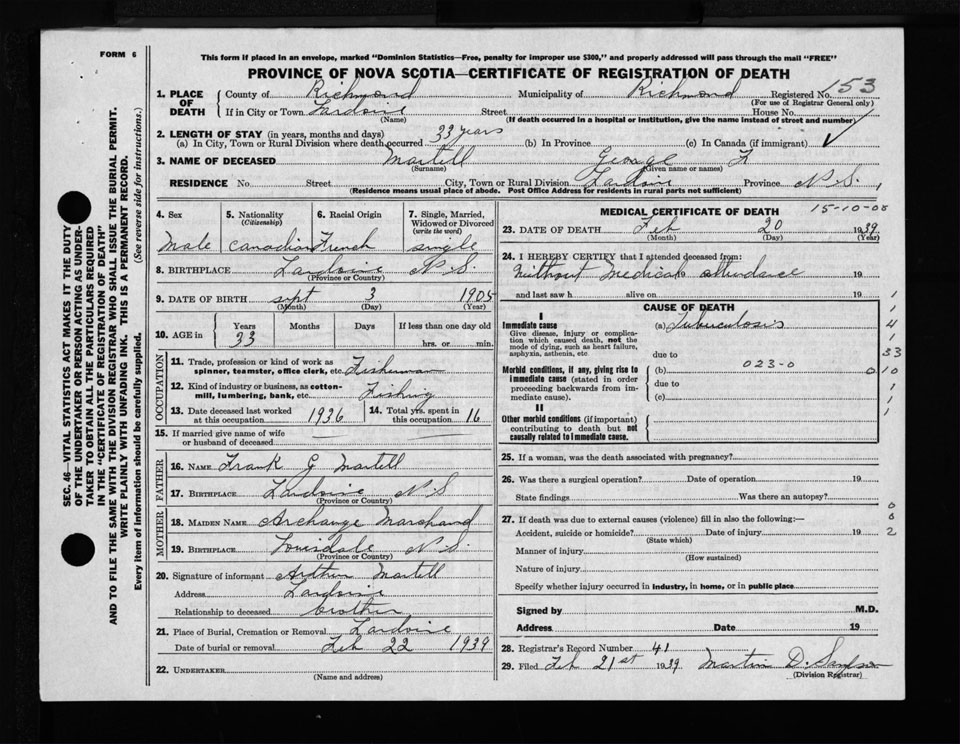 FORM 6
This form if placed in an envelope, marked "Dominion Statistics—Free, penalty for improper use $300," and properly addressed will pass through the mail "FREE"
PROVINCE OF NOVA SCOTIA—CERTIFICATE OF REGISTRATION OF DEATH
153
1. PLACE OF DEATH { County of Richmond Municipality of Richmond Registered No.
(For use of Registrar General only)
If in City or Town Lardoise Street House No.
(Name) (If death occurred in a hospital or institution, give the name instead of street and number)
2. LENGTH OF STAY (in years, months and days)
(a) In City, Town or Rural Division where death occurred 33 years (b) In Province (c) In Canada (if immigrant)
3. NAME OF DECEASED Martell George F
(Surname) (Given name or names)
RESIDENCE No. Street City, Town or Rural Division Lardoise Province N.S.
(Residence means usual place of abode. Post Office Address for residents in rural parts not sufficient)
4. Sex Male
5. Nationality (Citizenship) Canadian
6. Racial Origin French
7. Single, Married, Widowed or Divorced (write the word) single
8. BIRTHPLACE Lardoise N.S.
(Province or Country)
9. DATE OF BIRTH Sept 3 1905
(Month) (Day) (Year)
10. AGE in Years 33 Months Days If less than one day old hrs. or min.
OCCUPATION
11. Trade, profession or kind of work as spinner, teamster, office clerk, etc. Fisherman
12. Kind of industry or business, as cotton-mill, lumbering, bank, etc. Fishing
13. Date deceased last worked at this occupation 1936
14. Total yrs. spent in this occupation 16
15. If married give name of wife or husband of deceased
FATHER
16. NAME Frank G Martell
17. BIRTHPLACE Lardoise N.S
(Province or Country)
MOTHER
18. MAIDEN NAME Archange Marchand
19. BIRTHPLACE Louisdale N.S.
(Province or Country)
20. Signature of informant Arthur Martell
Address Lardoise
Relationship to deceased brother
21. Place of Burial, Cremation or Removal Lardoise
Date of burial or removal Feb 22 1939
22. UNDERTAKER
(Name and address)
MEDICAL CERTIFICATE OF DEATH 15-10-08
23. DATE OF DEATH Feb 20 1939
(Month) (Day) (Year)
24. I HEREBY CERTIFY that I attended deceased from:
Without Medical attendance 19
and last saw h alive on 19
CAUSE OF DEATH
I
Immediate cause
Give disease, injury or complication which caused death, not the mode of dying, such as heart failure, asphyxia, asthenia, etc
(a) Tuberculosis
due to
Morbid conditions, if any, giving rise to immediate cause (stated in order proceeding backwards from immediate cause).
(b) 023-0
due to
(c)
II
Other morbid conditions (if important) contributing to death but not causally related to immediate cause.
25. If a woman, was the death associated with pregnancy?
26. Was there a surgical operation? Date of operation 19
State findings Was there an autopsy?
27. If death was due to external causes (violence) fill in also the following:—
Accident, suicide or homicide? Date of injury 19
(State which)
Manner of injury
(How sustained)
Nature of injury
Specify whether injury occurred in industry, in home, or in public place
Signed by M.D.
Address Date 19
28. Registrar's Record Number 41
29. Filed Feb 21st 1939 Martin D. Sampson
(Division Registrar)
1
1
4
1
33
0 10
1
1
1
0
0
2
SEC. 46—VITAL STATISTICS ACT MAKES IT THE DUTY
OF THE UNDERTAKER OR PERSON ACTING AS UNDER-
TAKER TO OBTAIN ALL THE PARTICULARS REQUIRED
IN THE "CERTIFICATE OF REGISTRATION OF DEATH"
AND TO FILE THE SAME WITH THE DIVISION REGISTRAR WHO SHALL ISSUE THE BURIAL PERMIT.
WRITE PLAINLY WITH UNFADING INK. THIS IS A PERMANENT RECORD.
Every item of information should be carefully supplied. (See reverse side for instructions.)